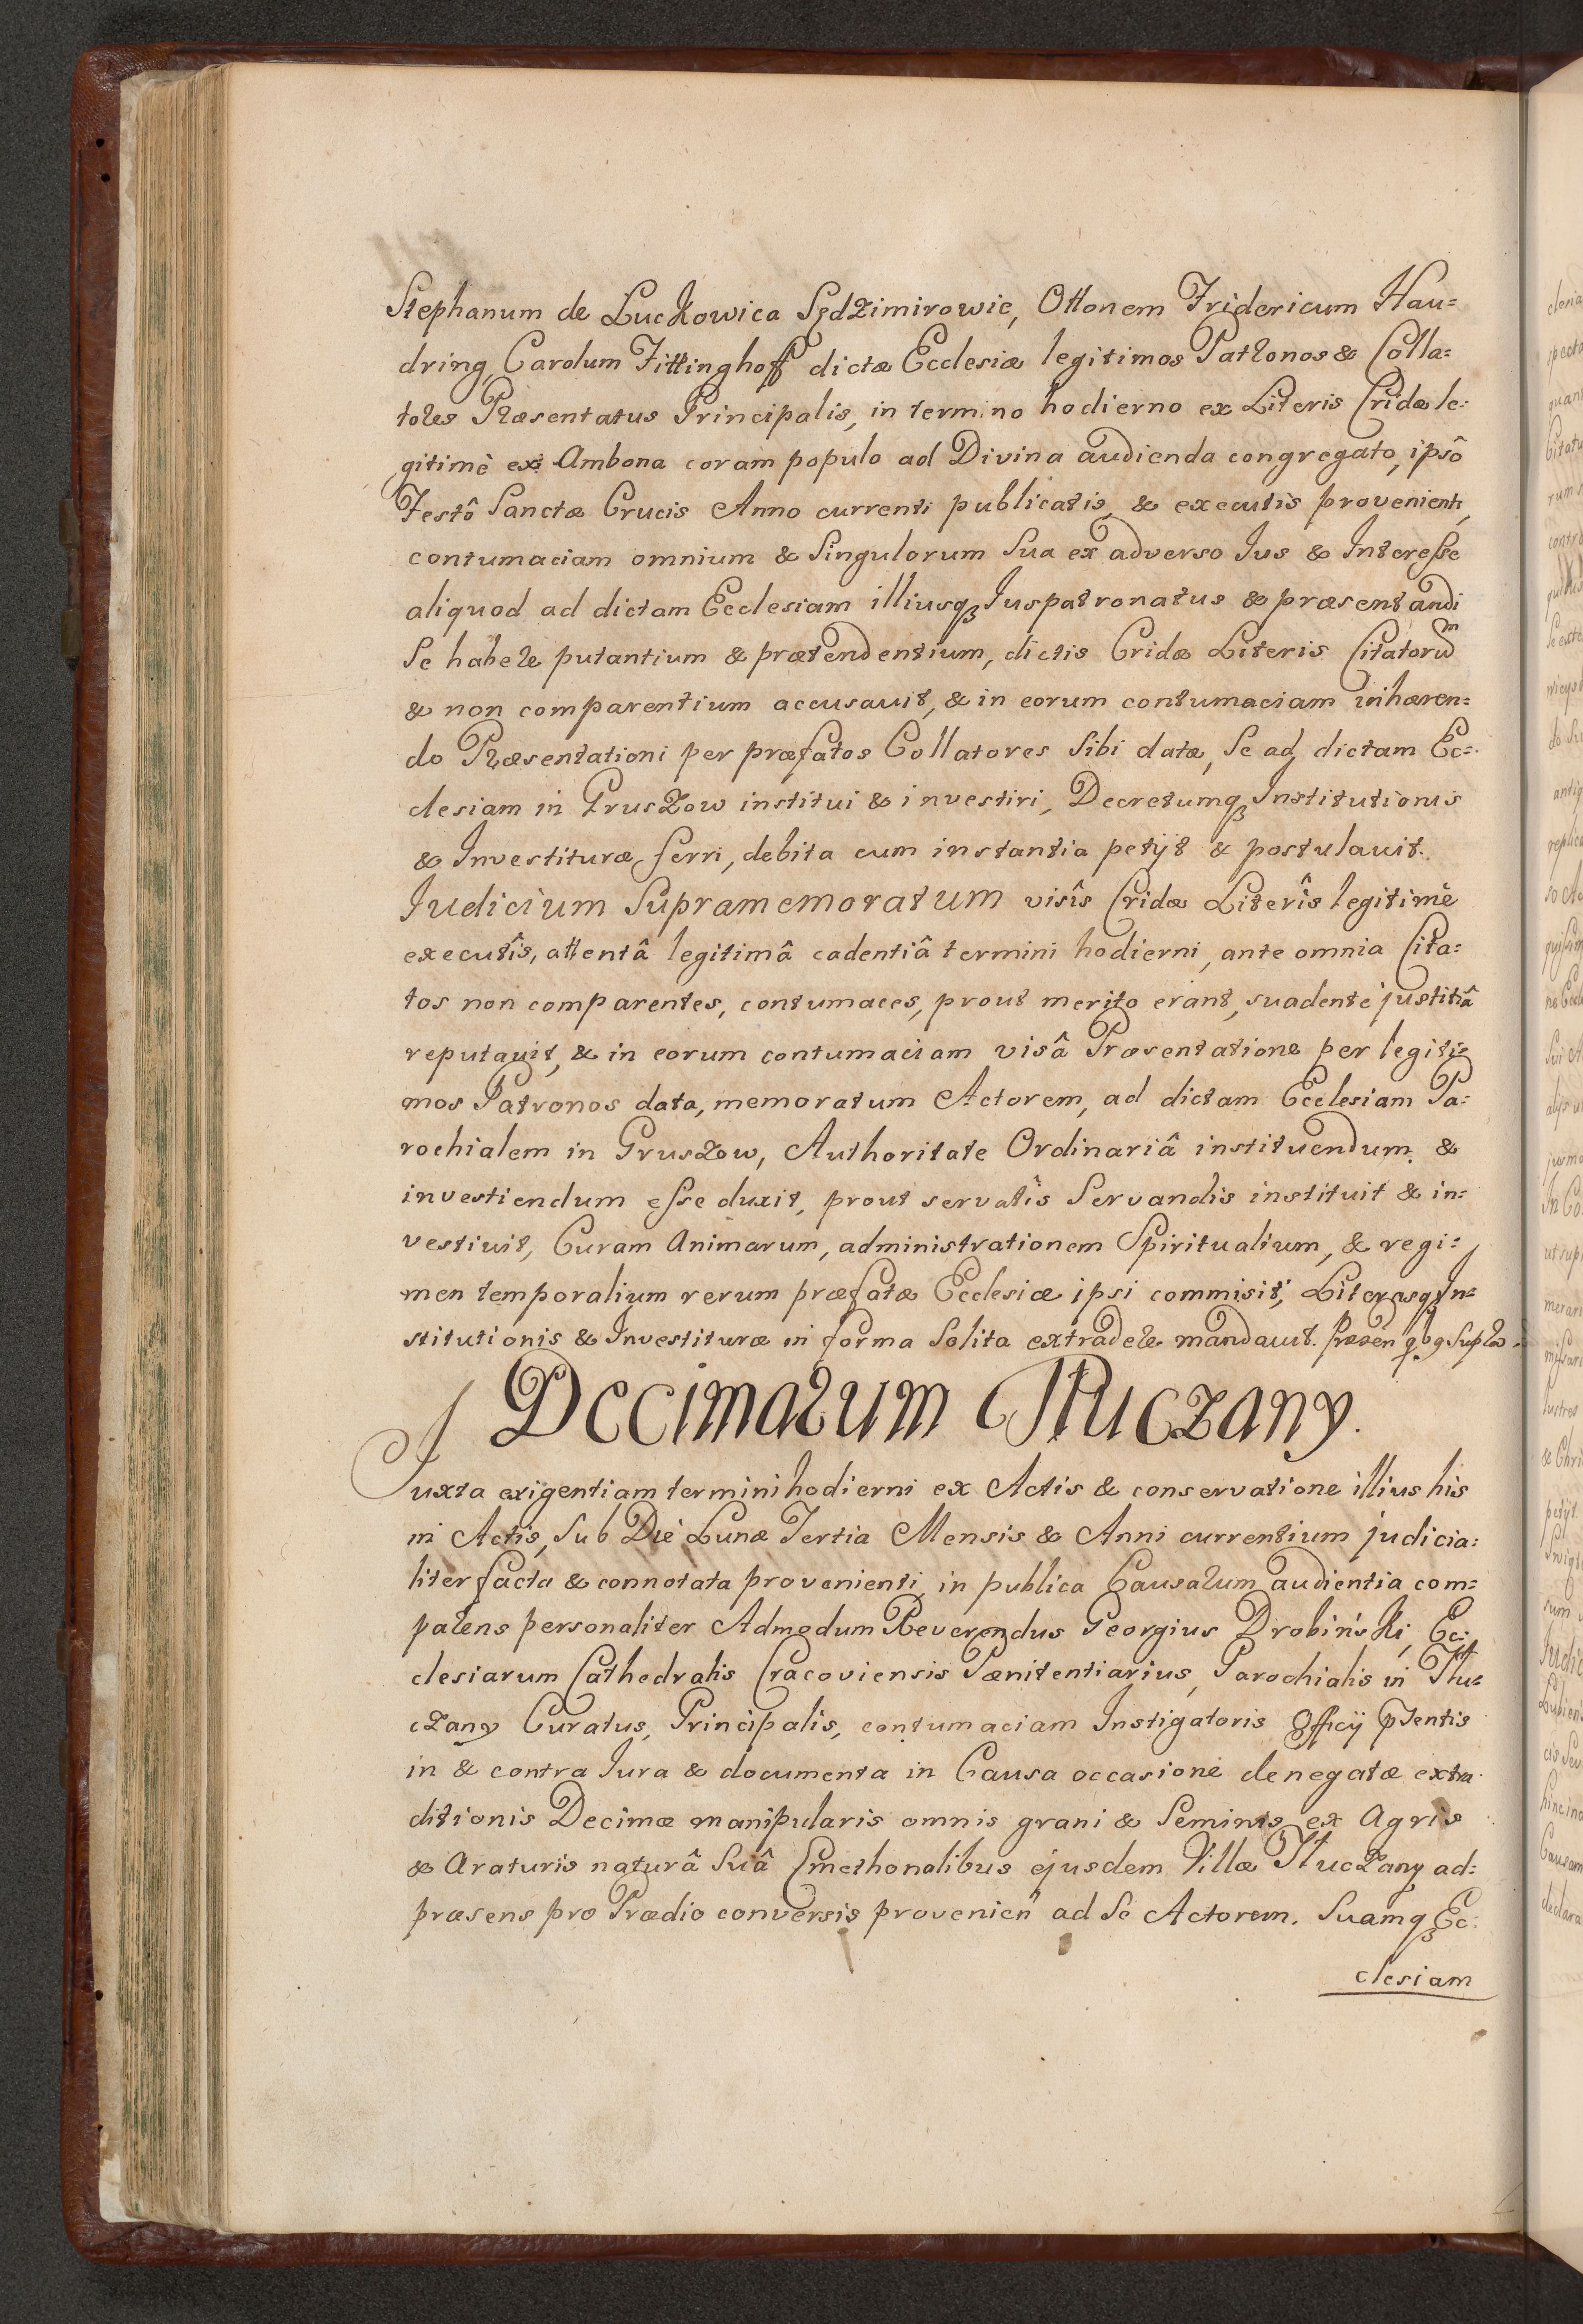 Stephanum de Luckowica Sędzimirowic, Ottonem Fridericum Hau=
dring, Carolum Fittinghoff dictæ Ecclesiæ legitimos Patronos & Colla=
tores Præsentatus Principalis, in termino hodierno ex Literis Cridæ le=
gitimè ex Ambona coram populo ad Divina audienda congregato, ipsô
Festô Sanctæ Crucis Anno currenti publicatis, & executis provenienti,
contumaciam omnium & Singulorum Sua ex adverso Jus & Interesse
aliquod ad dictam Ecclesiam illiusq3 Juspatronatus & præsentandi
Se habere putantium & prætendentium, dictis Cridæ Literis Citatorũm
& non comparentium accusavit, & in eorum contumaciam inhæren=
do Præsentationi per præfatos Collatores Sibi datæ, Se ad dictam Ec=
clesiam in Gruszow institui & investiri, Decretumq3 Institutionis
& Investituræ ferri, debita cum instantia petijt & postulavit.
Judicium Supramemoratum visîs Cridæ Literîs legitimè
executîs, attentâ legitimâ cadentiâ termini hodierni, ante omnia Cita=
tos non comparentes, contumaces, prout merito erant, suadente justitiâ
reputavit, & in eorum contumaciam visâ Præsentatione per legiti=
mos Patronos data, memoratum Actorem, ad dictam Ecclesiam Pa=
rochialem in Gruszow, Authoritate Ordinariâ instituendum &
investiendum esse duxit, prout servatîs Servandis instituit & in=
vestivit, Curam Animarum, administrationem Spiritualium, & regi=
men temporalium rerum præfatæ Ecclesiæ ipsi commisit, Literasq3 In=
stitutionis & Investituræ in forma Solita extradere mandavit. Præsen
Decimarum Tłuczany.
Juxta exigentiam termini hodierni ex Actis & conservatione illius his
in Actis, Sub Die Lunæ Tertia Mensis & Anni currentium judicia=
liter facta & connotata provenienti, in publica Causarum audientia com=
parens personaliter Admodum Reverendus Georgius Drobiński, Ec=
clesiarum Cathedralis Cracoviensis Pænitentiarius, Parochialis in Tłu=
czany Curatus, Principalis, contumaciam Instigatoris Officij pŕentis
in & contra Jura & documenta in Causa occasione denegatæ extra
ditionis Decimæ manipularis omnis grani & Seminis ex Agris
& Araturis naturâ Suâ Cmethonalibus ejusdem Villæ Tłuczany ad=
præsens pro Prædio conversis provenień ad Se Actorem. Suamq3 Ec=
clesiam